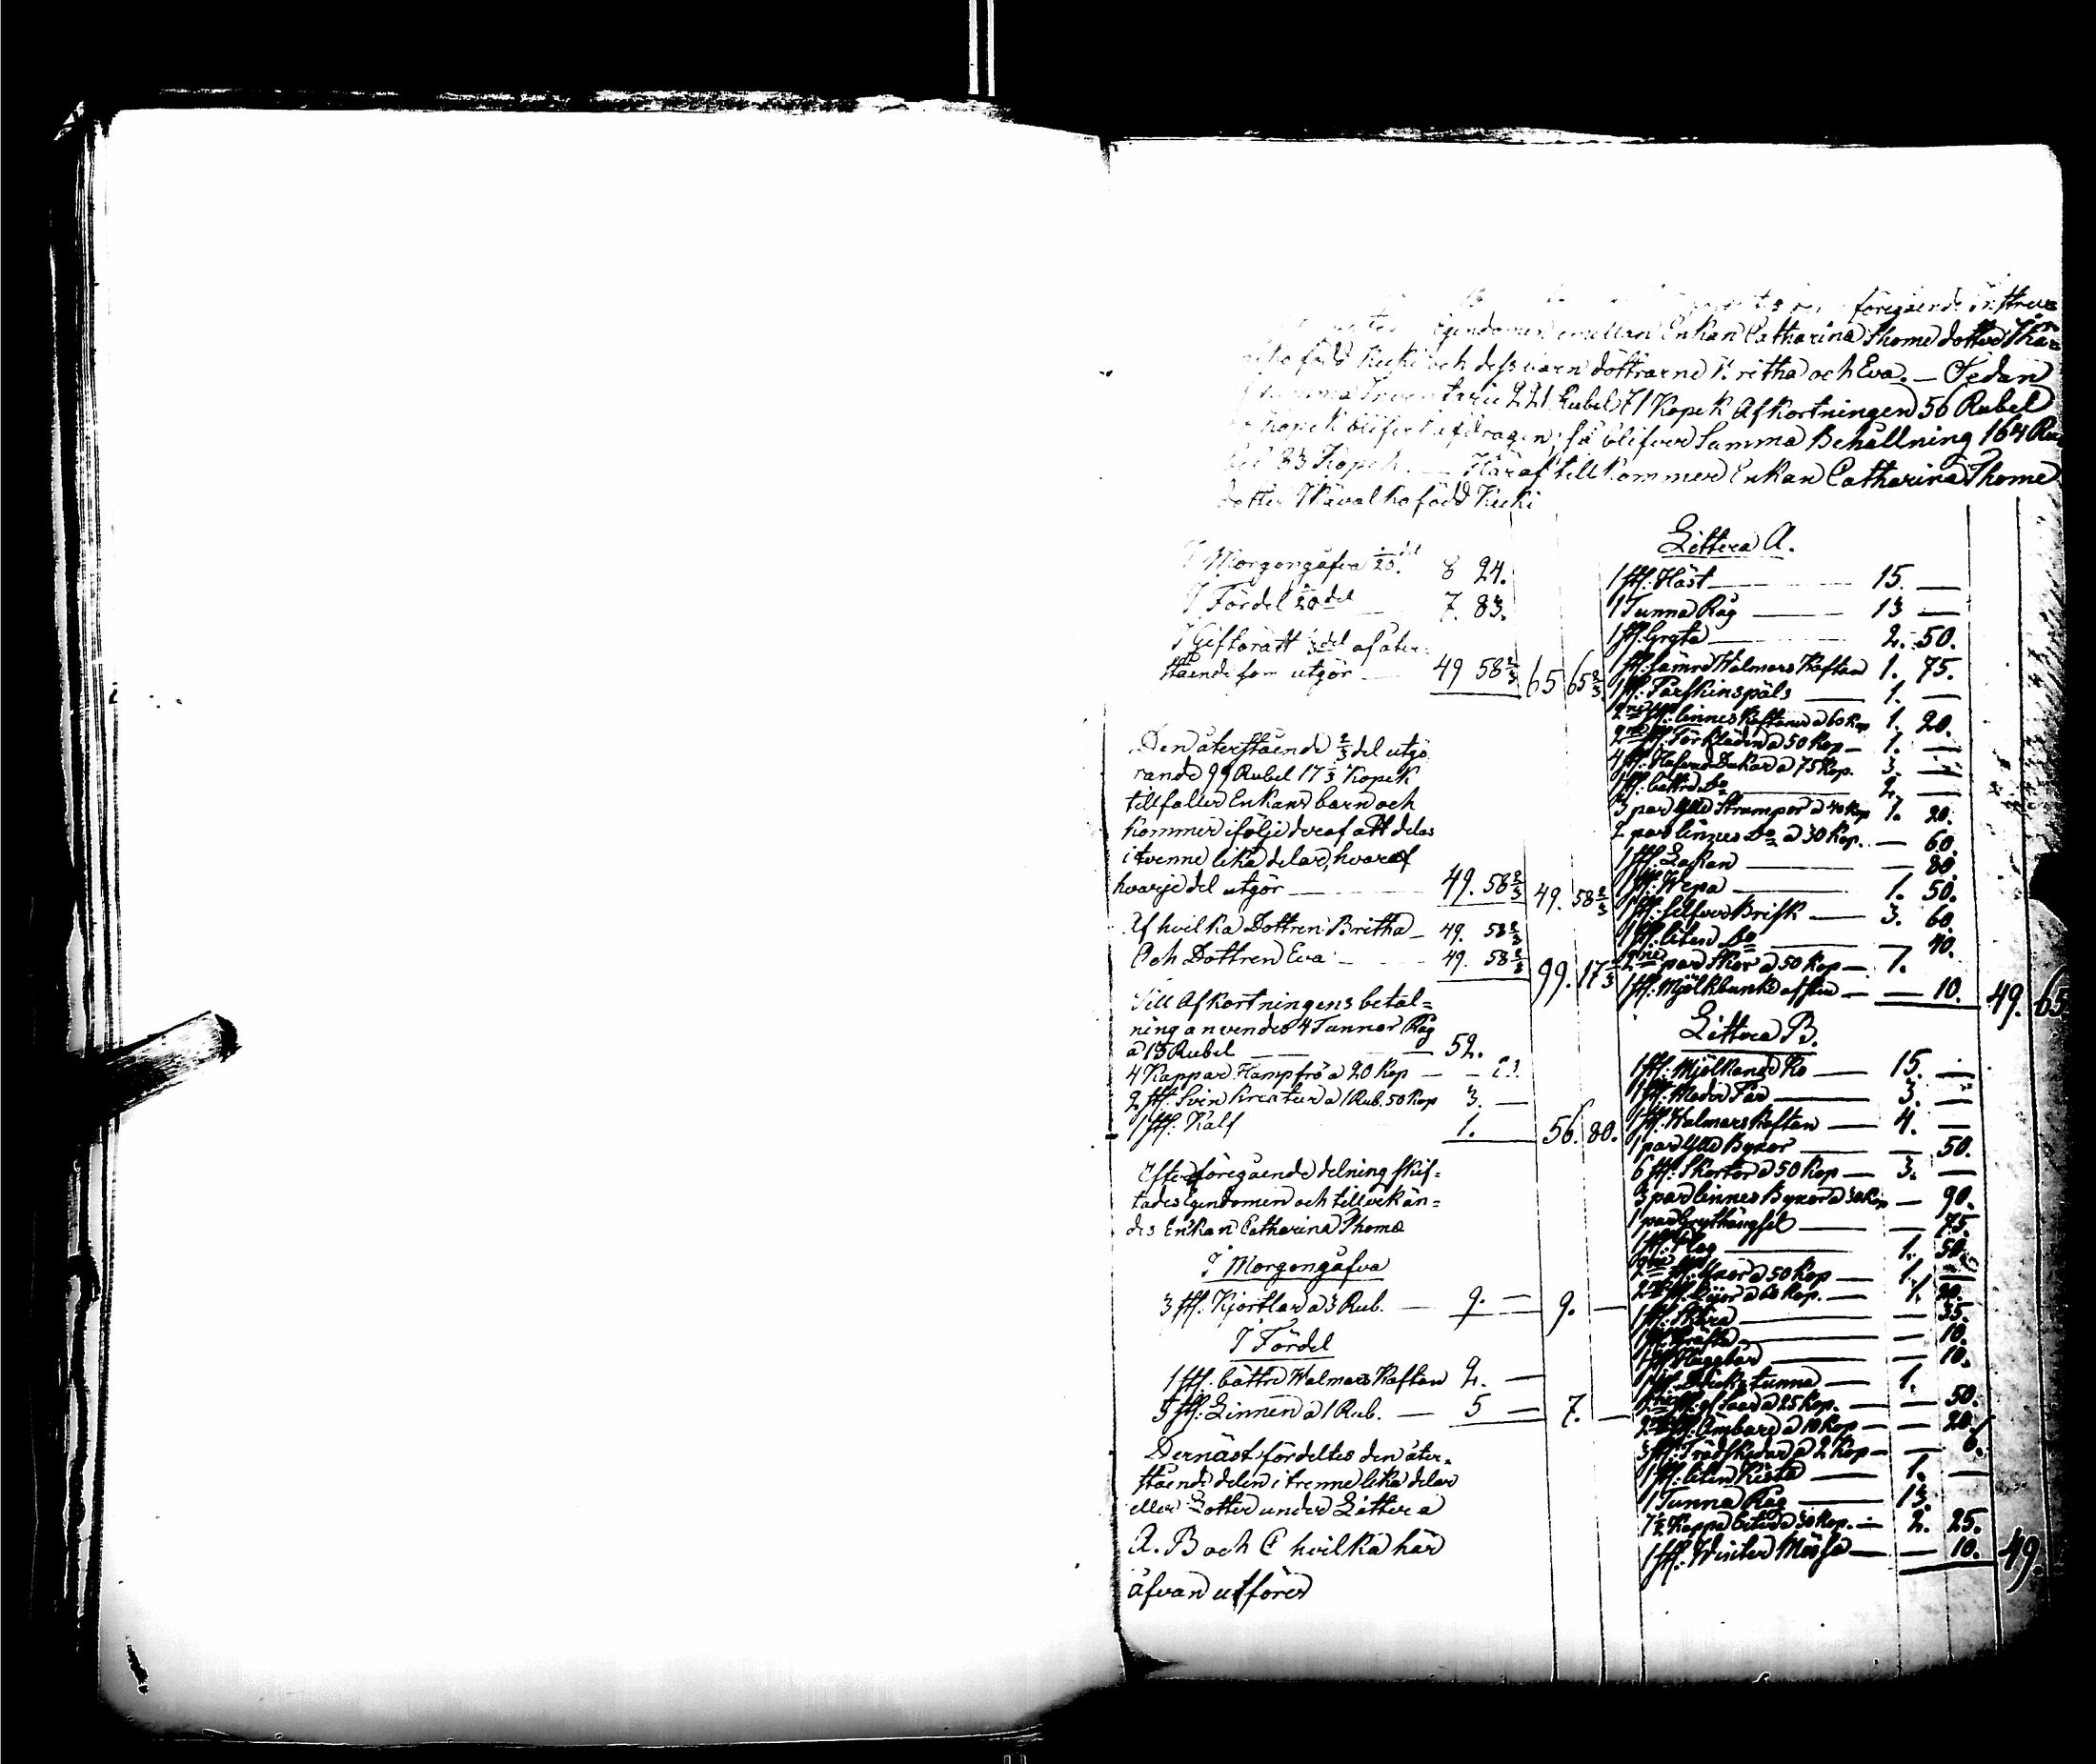 föregående
Egendomen emellan Enkan Catharina Thome dotter
född Kecki och dess barn döttrarne Britha och Eva. — Sedan
221 Rubel 71 Kopek Afkortningen 56 Rubel
Kopek blifvit afdragen, så blifver Summa Behållning 164 Ru
bel 33 Kopek. — Häraf tillkommer Enkan Catharina Thome
dotter född Kecki
I Morgongåfva 1/20 del 8 24.
I Fördel 1/20 del 7. 83.
I Giftorätt 1/3 del af åter=
stående som utgör — 49 58 2/3 65 65 2/3
Den återstående 2/3 del utgö
rande 99 Rubel 17 1/3 Kopek
tillfaller Enkans barn och
kommer i följe deraf att delas
i tvenne lika delar, hvaraf
hvarje del utgör — 49. 58 2/3 49. 58 2/3
Af hvilka Dottren Britha — 49. 58 2/3
Och Dottren Eva — 49. 58 2/3 99. 17 1/3
Till Afkortningens betal=
ning användes 4 Tunnor Råg
a 13 Rubel — 52.
4 Kappar Hampfrö a 20 Kop —
2 st. Svin Kreatur a 1 Rub. 50 Kop 3. —
1 st. Kalf 1. 56. 80.
Efter föregående delning skif=
tades Egendomen och tillerkän=
des Enkan Catharina Thome
I Morgongåfva
3 st. Kjortlar a 3 Rub. — 9. — 9. —
I Fördel
1 st. bättre Walmars Kaftan 2. —
5 st. Linnen a 1 Rub. — 5 — 7. —
Dernäst fördeltes den åter=
stående delen i trenne lika delar
eller Lotter under Littera
A. B och C hvilka här
äfvan utföres
Littera A.
1 st. Häst — 15. —
1 Tunna Råg — 13 —
1 st. Gryta — 2. 50.
1 st. sämre Walmars Kaftan 1. 75.
1 st. Fårskinspäls — 1. —
2ne st. linnes Kaftaner a 60 Kop 1. 20.
2ne st. Förkläden a 50 Kop — 1. —
4 st. Hufvud Dukar a 75 Kop. 3. —
1 st. bättre Do — 2. —
3 par Ylle Strumpor a 40 Kop 1. 20.
2 par linnes Do a 30 Kop. — 60.
1 st. Lakan — 80.
1 st. Wepa — 1. 50.
1 st. silfver Brisk — 3. 60.
1 st. liten Do — 40.
2ne par Skor a 50 Kop — 1.
1 st. Mjölkbunke — 10. 49. 65
Littera B.
1 st. Mjölkande Ko — 15. —
1 st. Moder Får — 3. —
1 st. Walmars Kaftan — 4. —
1 par Ylle Byxor — 50.
6 st. Skortor a 50 Kop — 3. —
3 par linnes Byxor a 30 Kop — 90.
1 par Grythängsel — 75.
1 st. Plog — 1. 50.
2ne st. Yxor a 50 Kop — 1. —
2ne st. Lijor a 60 Kop. — 1. 20.
1 st. Skära — 35.
1 st. — 10.
1 st. — 10.
1 st. Dricks tunna — 1.
2ne st. a 25 Kop. — 50.
2ne st. Ämbare a 10 Kop — 20.
3 st. Trädskedar a 2 Kop — 6.
1 st. liten Kista — 1. —
1 Tunna Råg — 13.
7 1/2 Kappa a 30 Kop. — 2. 25.
1 st. Winter Mössa — 10. 49.